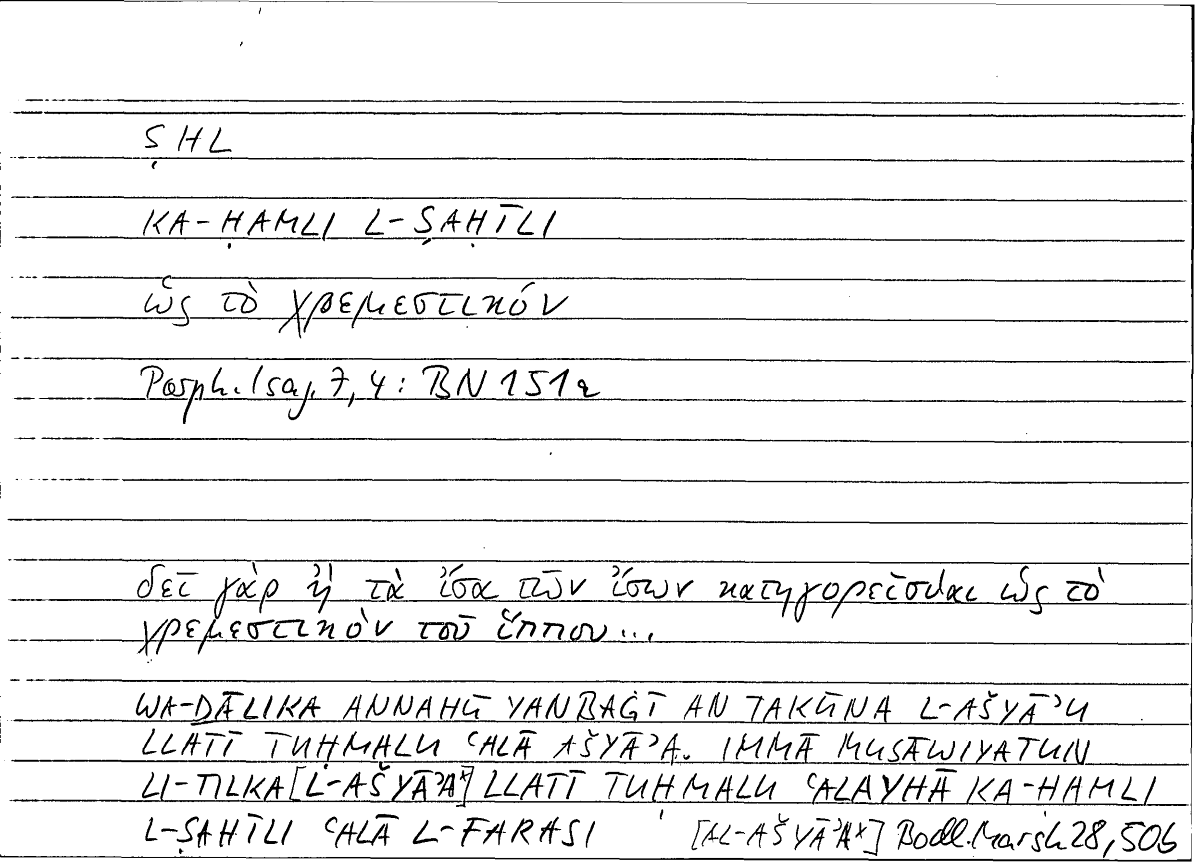 ṢHL
KA-ḤAMLI L-ṢAḤĪLI
ὡς τὸ χρεμεστικόν
Porph. Isag. 7,4: BN 151a
δεῖ γὰρ ἢ τὰ ἴσα τῶν ἴσων κατηγορεῖσθαι ὡς τὸ
χρεμεστικὸν τοῦ ἵππου...
WA-ḎĀLIKA ANNAHŪ YANBAĠĪ AN TAKŪNA L-AŠYĀʾU
LLATĪ TUḤMALU ʿALĀ AŠYĀʾA. IMMĀ MUSĀWIYATUN
LI-TILKA [L-AŠYĀʾA*] LLATĪ TUḤMALU ʿALAYHĀ KA-HAMLI
L-ṢAHĪLI ʿALĀ L-FARASI [AL-AŠYĀʾA*] Bodl. Marsh 28, 50b